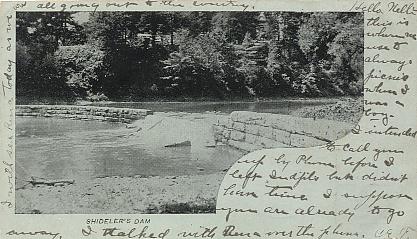 Hello Nell
this is
where we
use to
always
picnic
when I
was a
boy
I intended
to call you
up by Phone before I
left Indpls but didnt
have time I suppose
you are already to go
away. I talked with Rena over the phone,
I will see Rena today as we
are all going out to the country.
SHIDELER'S DAM